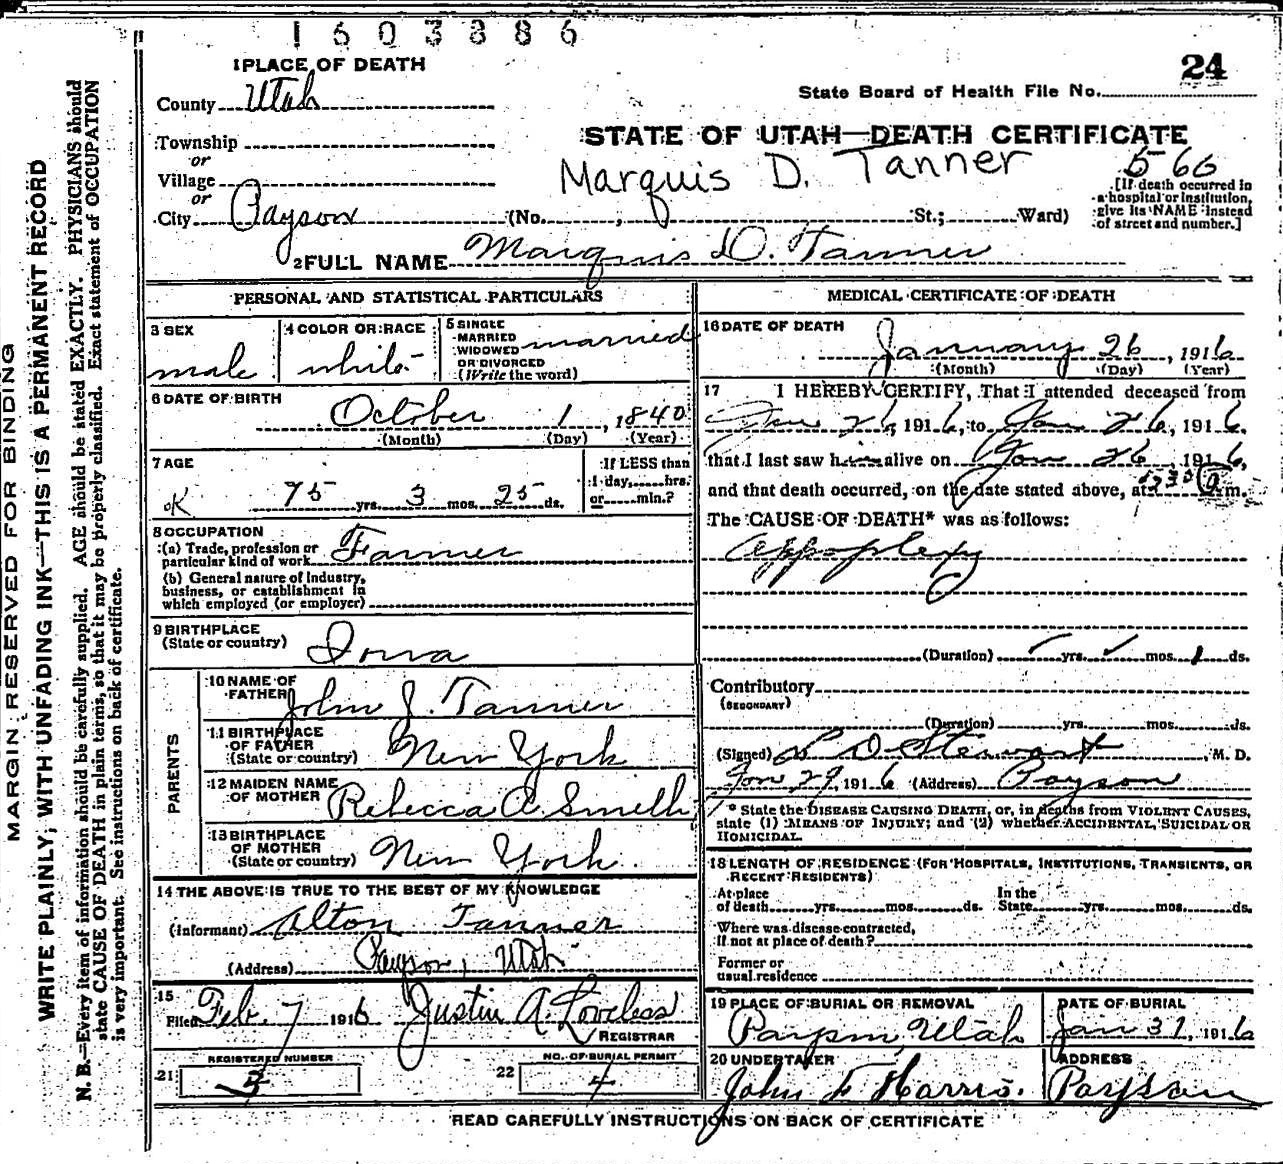 1603886
1 PLACE OF DEATH
24
County Utah
State Board of Health File No.
Township
or
STATE OF UTAH—DEATH CERTIFICATE
Village
Marquis D. Tanner
560
or
City Payson (No. , St.; Ward)
[If death occurred in
a hospital or institution,
give its NAME instead
of street and number.]
2 FULL NAME Marquis D. Tanner
PERSONAL AND STATISTICAL PARTICULARS
3 SEX
male
4 COLOR OR RACE
white
5 SINGLE
MARRIED
WIDOWED
OR DIVORCED
(Write the word)
married
6 DATE OF BIRTH
October 1, 1840
(Month) (Day) (Year)
7 AGE
OK 75 yrs. 3 mos. 25 ds.
If LESS than
1 day, hrs.
or min.?
8 OCCUPATION
(a) Trade, profession or
particular kind of work Farmer
(b) General nature of industry,
business, or establishment in
which employed (or employer)
9 BIRTHPLACE
(State or country) Iowa
PARENTS
10 NAME OF
FATHER John J. Tanner
11 BIRTHPLACE
OF FATHER
(State or country) New York
12 MAIDEN NAME
OF MOTHER Rebecca A. Smith
13 BIRTHPLACE
OF MOTHER
(State or country) New York.
14 THE ABOVE IS TRUE TO THE BEST OF MY KNOWLEDGE
(Informant) Alton Tanner
(Address) Payson, Utah
15
Filed Feb. 7 1916 Justin A. Loveless
REGISTRAR
REGISTERED NUMBER
21 3
NO. OF BURIAL PERMIT
22 4
MEDICAL CERTIFICATE OF DEATH
16 DATE OF DEATH
January 26, 1916
(Month) (Day) (Year)
17 I HEREBY CERTIFY, That I attended deceased from
Jan 26, 1916, to Jan 26, 1916,
that I last saw him alive on Jan 26, 1916,
and that death occurred, on the date stated above, at a m.
The CAUSE OF DEATH* was as follows:
Appoplexy
(Duration) yrs. mos. 1 ds.
Contributory
(SECONDARY)
(Duration) yrs. mos. ds.
(Signed) L D Stewart, M. D.
Jan 29, 1916 (Address) Payson
* State the DISEASE CAUSING DEATH, or, in deaths from VIOLENT CAUSES,
state (1) MEANS OF INJURY; and (2) whether ACCIDENTAL, SUICIDAL OR
HOMICIDAL.
18 LENGTH OF RESIDENCE (FOR HOSPITALS, INSTITUTIONS, TRANSIENTS, OR
RECENT RESIDENTS)
At place In the
of death yrs. mos. ds. State yrs. mos. ds.
Where was disease contracted,
If not at place of death?
Former or
usual residence
19 PLACE OF BURIAL OR REMOVAL
Payson, Utah
DATE OF BURIAL
Jan 31, 1916
20 UNDERTAKER
John F Harris.
ADDRESS
Payson
READ CAREFULLY INSTRUCTIONS ON BACK OF CERTIFICATE
MARGIN RESERVED FOR BINDING
WRITE PLAINLY, WITH UNFADING INK—THIS IS A PERMANENT RECORD
N. B.—Every item of information should be carefully supplied. AGE should be stated EXACTLY. PHYSICIANS should
state CAUSE OF DEATH in plain terms, so that it may be properly classified. Exact statement of OCCUPATION
is very important. See instructions on back of certificate.